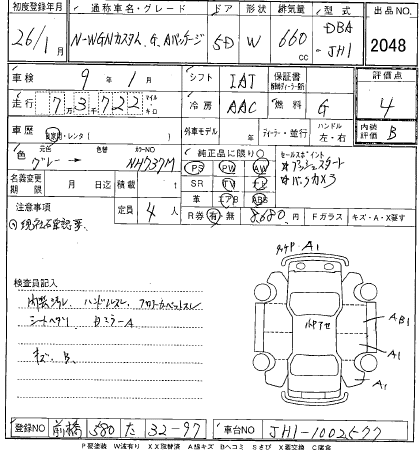 初度登録年月 通称車名・グレード ドア 形状 排気量 型式 出品NO.
26/1月 N-WGNカスタム G.Aパッケージ 5D W 660cc DBA-JH1 2048
車検 9年1月 シフト IAT 保証書 評価点
走行 7万3千722 マイル キロ 冷房 AAC 燃料 G 4
車歴 自家用・レンタ( ) 外車モデル 年 ディーラー・並行 ハンドル 左・右 内装評価 B
色 元色 色替 カラーNO 純正品に限り○ セールスポイント
グレー → NH737M PS PW AW ☆プッシュスタート
名義変更期限 月 日迄 積載 t SR TV ナビ ☆バックカメラ
革 エアB ABS
注意事項 定員 4人 R券 有 無 8,680円 Fガラス キズ・A・X要す
検査員記入 A1
シートヘタリ
キズ、B A1
A1
登録NO 前橋 580 た 32-97 車台NO JH1-1002577
P要塗装 W波有り XX取替済 A線キズ Bヘコミ Sさび X要交換 C腐食